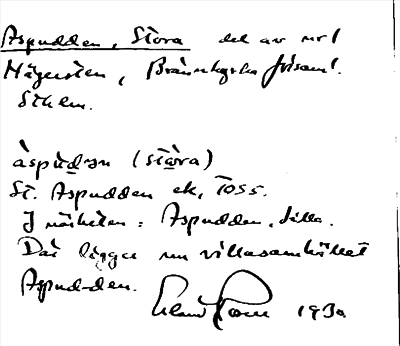 Aspudden, Stora del av nr 1
Hägersten, Brännkyrka församl.
Sthlm.
àspùd̲ən (stà̲ra)
St. Aspudden ek, TOSS.
I närheten: Aspudden, Lilla.
Där ligger nu villasamhället
Aspudden.
1930